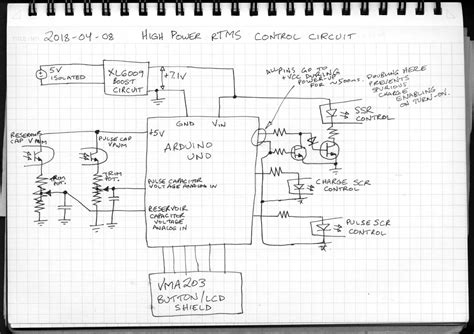 2018-04-08 HIGH POWER rTMS CONTROL CIRCUIT
5V
ISOLATED
XL6009
BOOST
CIRCUIT
+7.1V
ALL PINS GO TO
+VCC DURING
POWER-UP
FOR ~500ms.
DOUBLING HERE
PREVENTS
SPURIOUS
CHARGE
ENABLING
ON TURN-ON.
SSR
CONTROL
RESERVOIR
CAP
PULSE CAP
GND
VIN
+5V
ARDUINO
UNO
TRIM
POT.
TRIM
POT.
PULSE CAPACITOR
VOLTAGE ANALOG IN
RESERVOIR
CAPACITOR
VOLTAGE
ANALOG IN
CHARGE SCR
CONTROL
PULSE SCR
CONTROL
VMA203
BUTTON/LCD
SHIELD